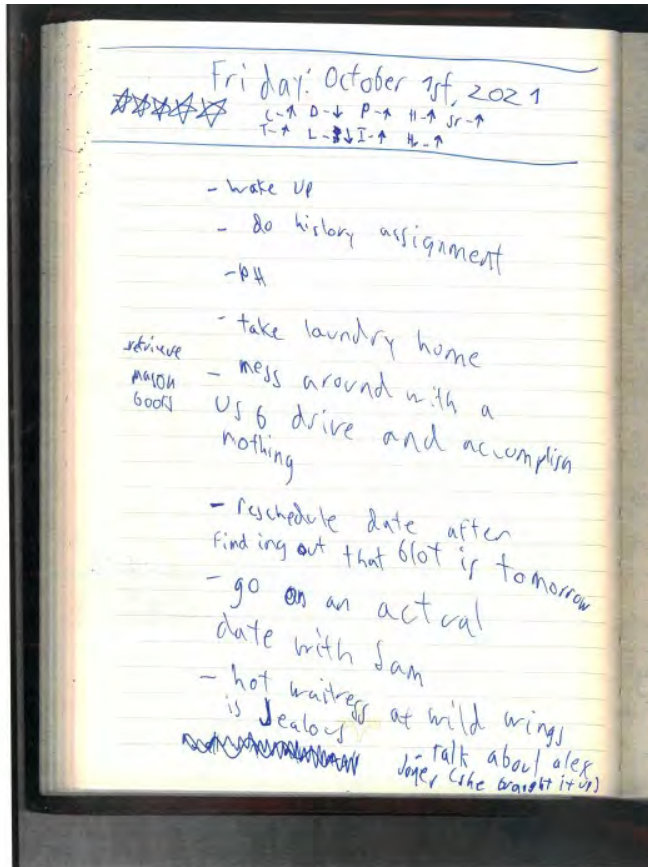 Friday: October 1st, 2021
C-↑ D-↓ P-↑ H-↑ Sr-↑
T-↑ L-↓ I-↑ Hr-↑
- wake up
- do history assignment
- PH
- take laundry home
retrieve
books
- mess around with a
USB drive and accomplish
nothing
- reschedule date after
finding out that blot is tomorrow
- go on an actual
date with Sam
- hot waitress at wild wings
is Jealous
- talk about alex
Jones (she braught it up)